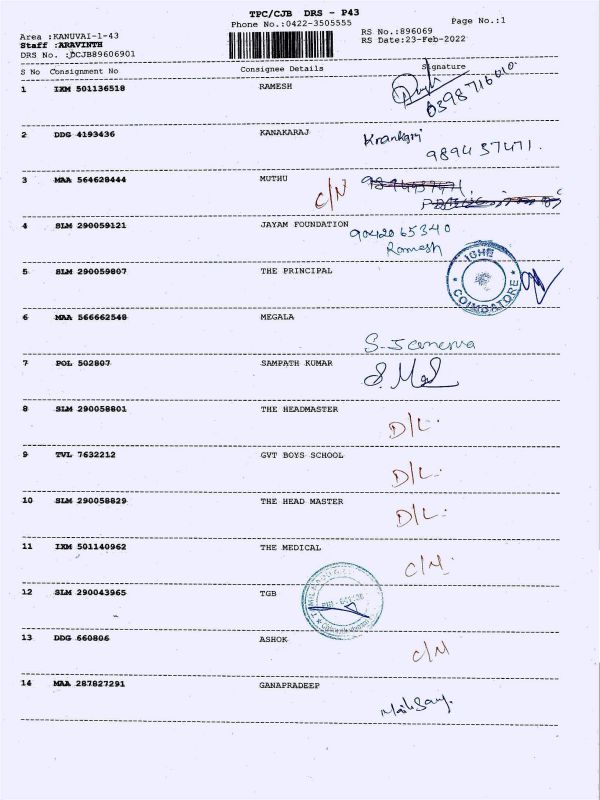 TPC/CJB DRS - P43
Phone No.:0422-3505555
Page No.:1
Area :KANUVAI-1-43
RS No.:896069
Staff :ARAVINTH
RS Date:23-Feb-2022
DRS No. :DCJB89606901
S No Consignment No Consignee Details Signature
1 IXM 501136518 RAMESH
6398716010.
2 DDG 4193436 KANAKARAJ
9894 37471.
3 MAA 564628444 MUTHU C/N
4 SLM 290059121 JAYAM FOUNDATION 9042065340
Ramesh
5 SLM 290059807 THE PRINCIPAL IGHE COIMBATORE
6 MAA 566662548 MEGALA
7 POL 502807 SAMPATH KUMAR
8 SLM 290058801 THE HEADMASTER
D/L.
9 TVL 7632212 GVT BOYS SCHOOL
D/L.
10 SLM 290058829 THE HEAD MASTER
D/L.
11 IXM 501140962 THE MEDICAL
C/N.
12 SLM 290043965 TGB
13 DDG 660806 ASHOK
C/N
14 MAA 287827291 GANAPRADEEP